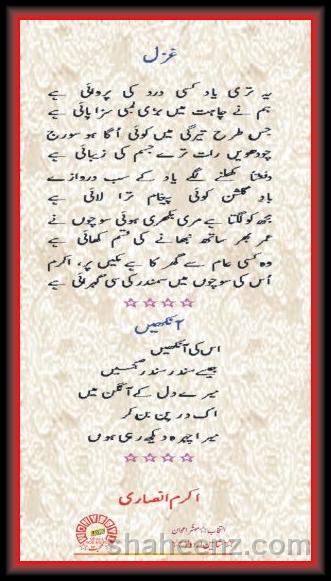 غزل
یہ تری یاد کسی درد کی پروائی ہے
ہم نے چاہت میں بڑی لمبی سزا پائی ہے
جس طرح تیرگی میں کوئی اُگا ہو سورج
چودھویں رات ترے جسم کی زیبائی ہے
دفعتاً کھلنے لگے یاد کے سب دروازے
باد گلشن کوئی پیغام ترا لائی ہے
مجھ کو لگتا ہے مری بکھری ہوئی سوچوں نے
عمر بھر ساتھ نبھانے کی قسم کھائی ہے
وہ کسی عام سے گھر کا ہے مکیں پر، اکرم
اُس کی سوچوں میں سمندر کی سی گہرائی ہے
آنکھیں
اس کی آنکھیں
جیسے سندر سندر
میرے دل کے آنگن میں
اک درپن بن کر
میرا چہرہ دیکھ رہی ہوں
اکرم انصاری
انتخاب
shaheenz.com